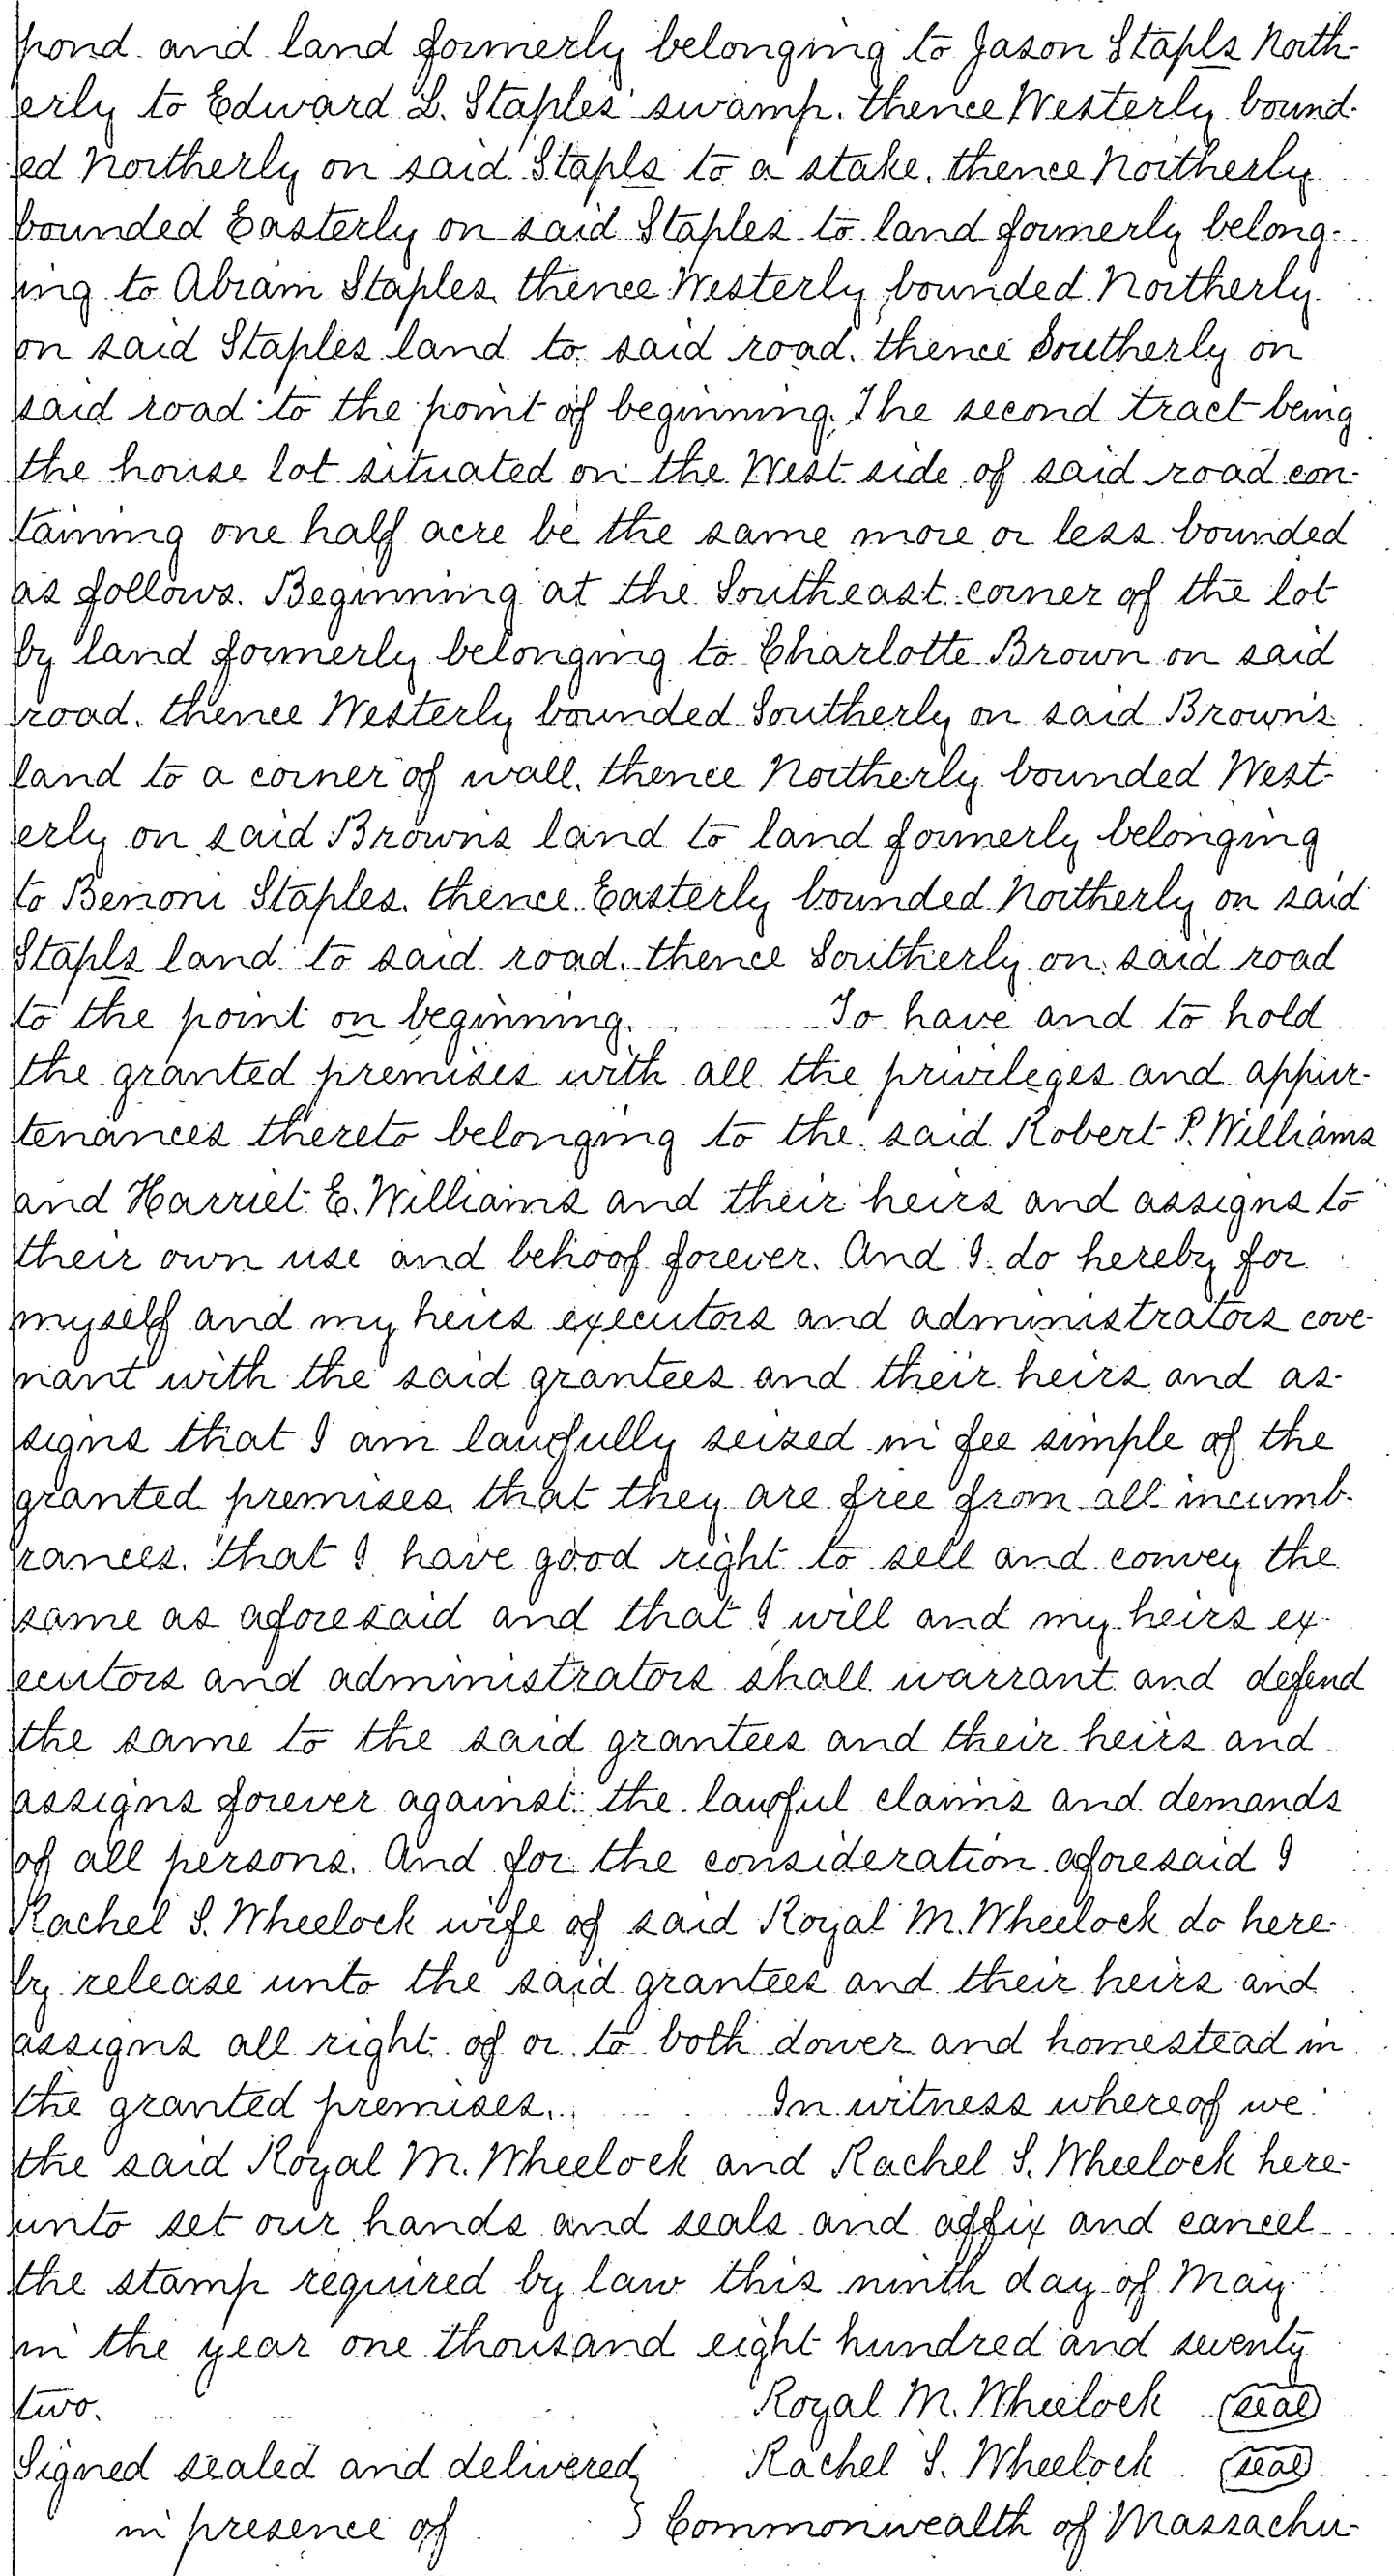 pond and land formerly belonging to Jason Stapls North-
erly to Edward L. Staples' swamp. thence Westerly bound-
ed Northerly on said Stapls to a stake. thence Northerly
bounded Easterly on said Staples to land formerly belong-
ing to Abram Staples. thence Westerly bounded Northerly
on said Staples land to said road. thence Southerly on
said road to the point of beginning. The second tract being
the house lot situated on the West side of said road con-
taining one half acre be the same more or less bounded
as follows. Beginning at the Southeast corner of the lot
by land formerly belonging to Charlotte Brown on said
road. thence Westerly bounded Southerly on said Browns
land to a corner of wall. thence Northerly bounded West-
erly on said Browns land to land formerly belonging
to Benoni Staples. thence Easterly bounded Northerly on said
Stapls land to said road. thence Southerly on said road
to the point on beginning. To have and to hold
the granted premises with all the privileges and appur-
tenances thereto belonging to the said Robert P. Williams
and Harriet E. Williams and their heirs and assigns to
their own use and behoof forever. And I do hereby for
myself and my heirs executors and administrators cove-
nant with the said grantees and their heirs and as-
signs that I am lawfully seized in fee simple of the
granted premises. that they are free from all incumb-
rances. that I have good right to sell and convey the
same as aforesaid and that I will and my heirs ex-
ecutors and administrators shall warrant and defend
the same to the said grantees and their heirs and
assigns forever against the lawful claims and demands
of all persons. And for the consideration aforesaid I
Rachel S. Wheelock wife of said Royal M. Wheelock do here-
by release unto the said grantees and their heirs and
assigns all right of or to both dower and homestead in
the granted premises. In witness whereof we
the said Royal M. Wheelock and Rachel S. Wheelock here-
unto set our hands and seals and affix and cancel
the stamp required by law this ninth day of May
in the year one thousand eight hundred and seventy
two. Royal M. Wheelock (seal)
Signed sealed and delivered Rachel S. Wheelock (seal)
in presence of } Commonwealth of Massachu-